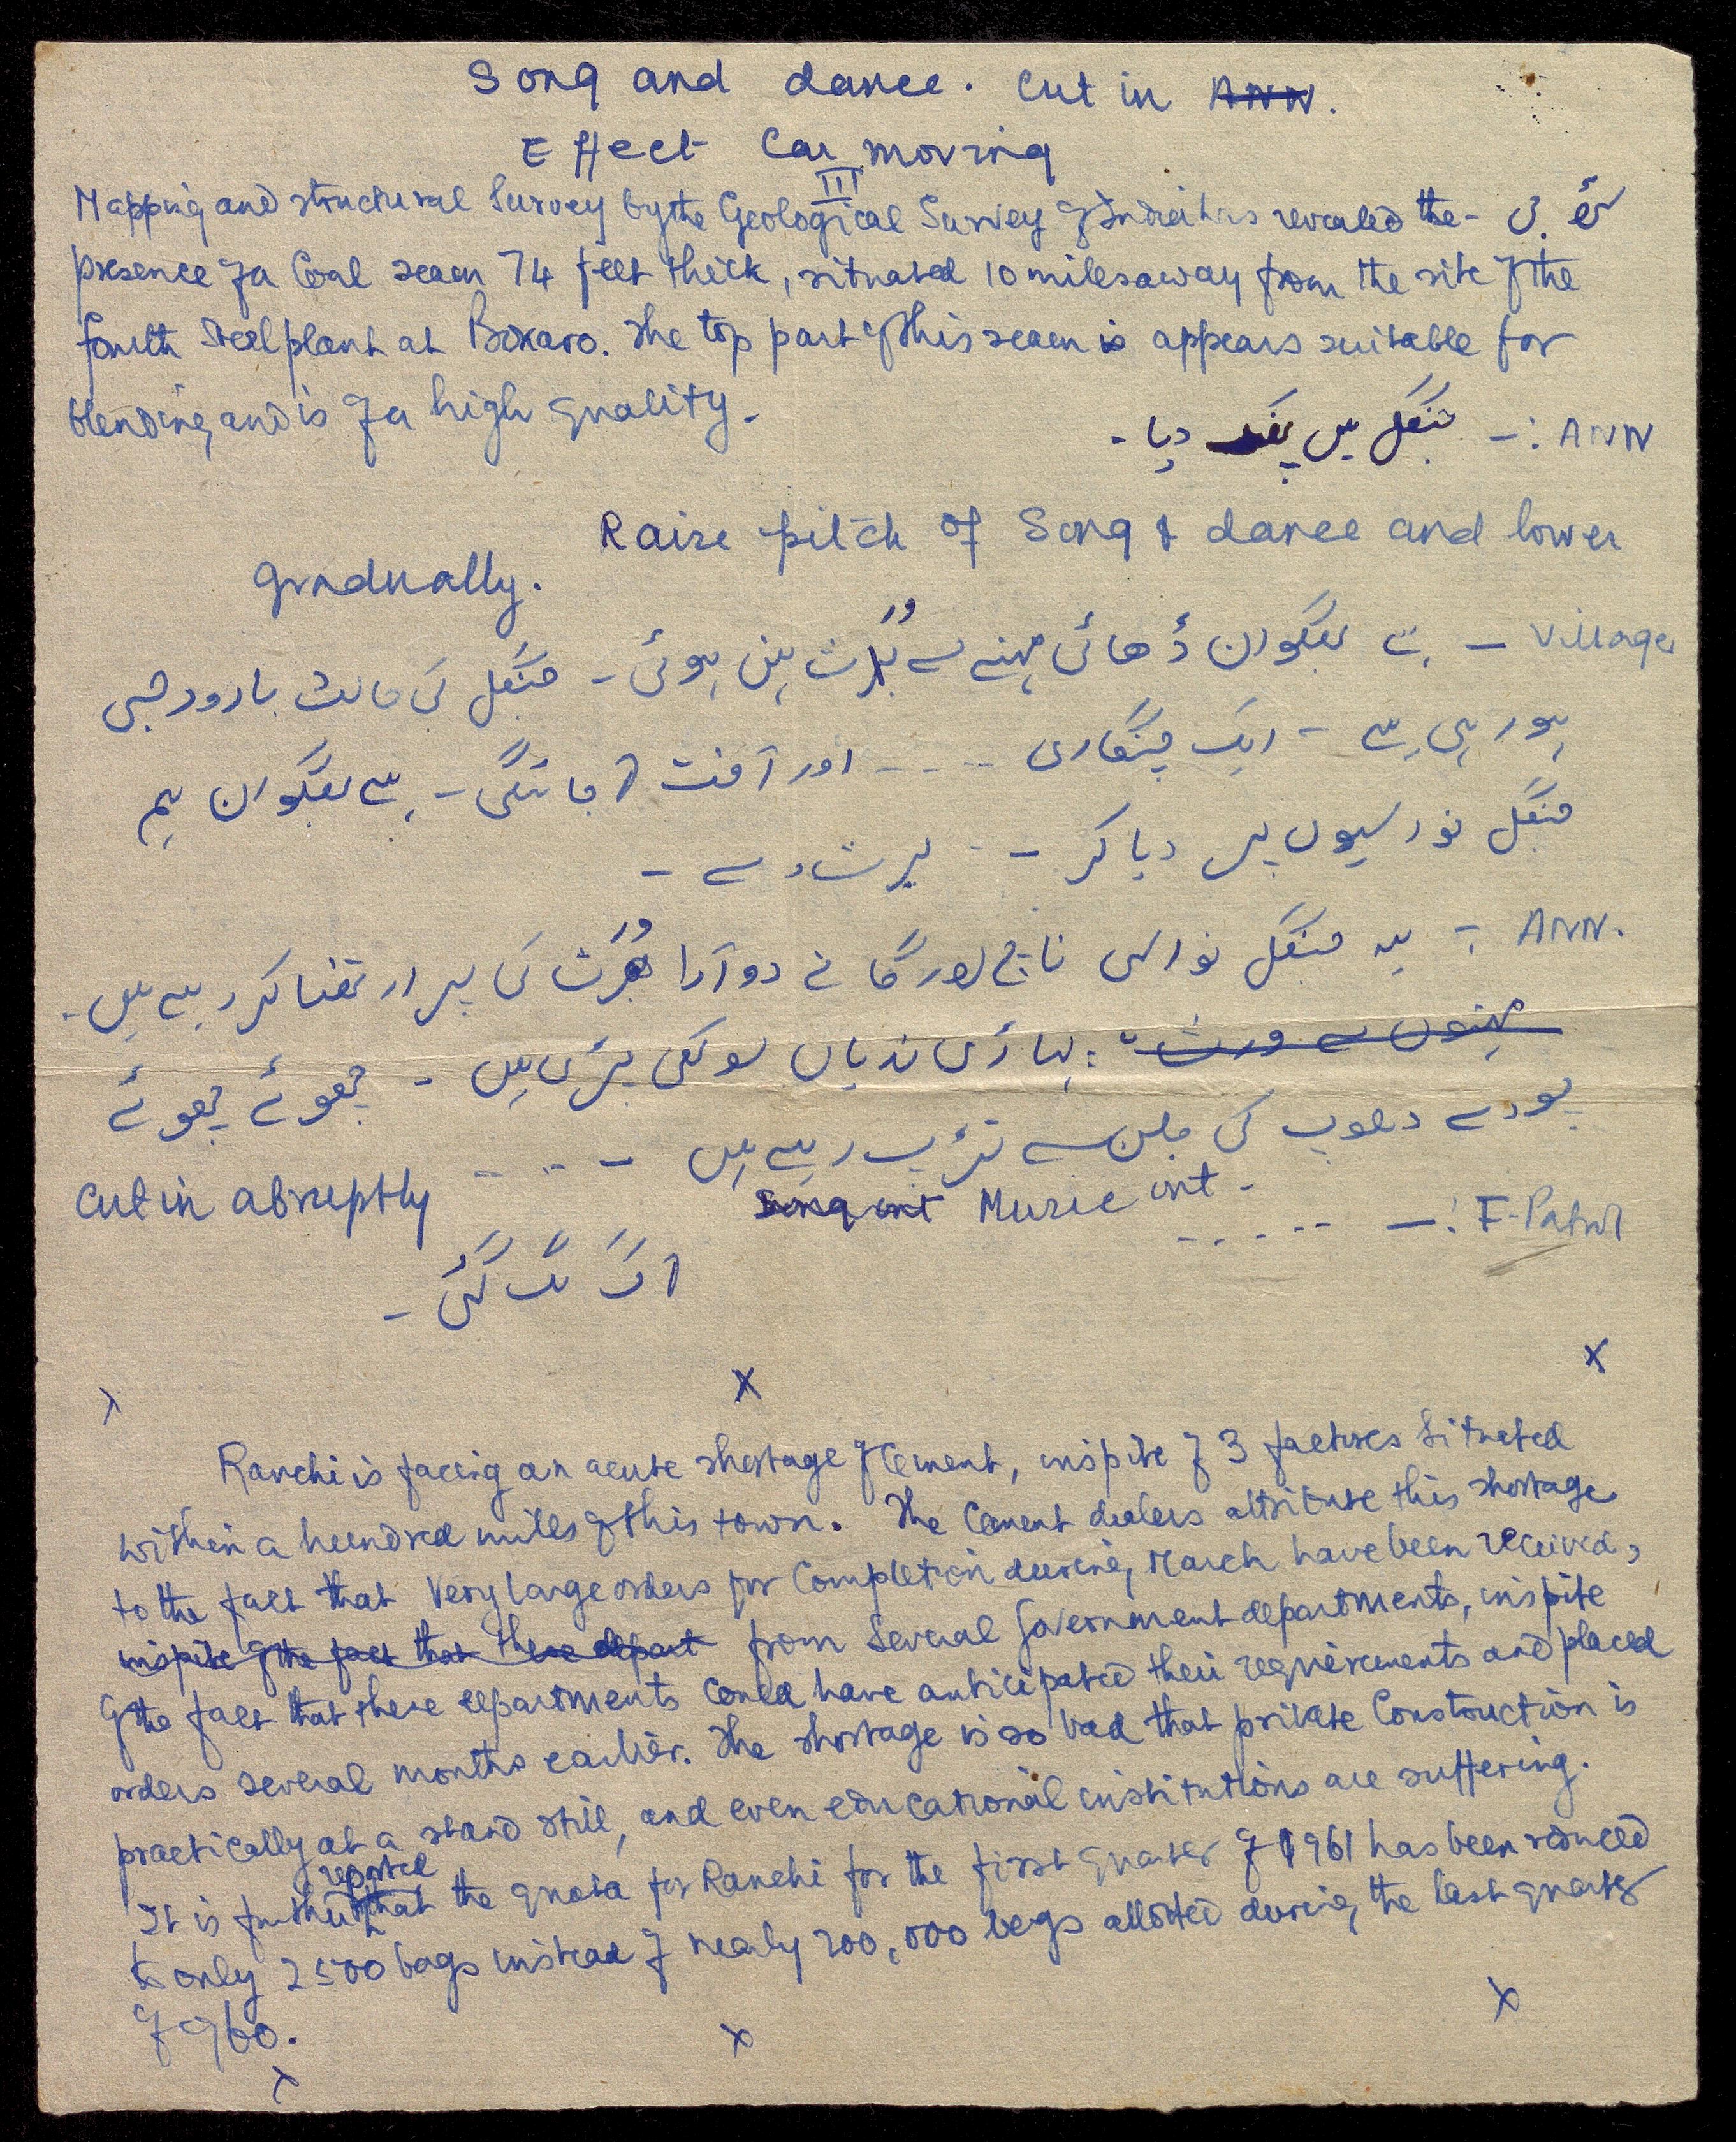 Song and dance. Cut in ANN.
Effect Car moving
III
Mapping and structural Survey by the Geological Survey of India has revealed the-
presence of a Coal seam 74 feet thick, situated 10 miles away from the site of the
fourth Steel plant at Bokaro. The top part of this seam is appears suitable for
blending and is of a high quality.
ANN :- جنگل میں پھینک دیا -
Raise pitch of Song & dance and lower
gradually.
Village - ہے بھگوان ڈھائی مہینے سے ورشٹ نہیں ہوئی - جنگل کی حالت بارود جیسی
ہو رہی ہے - ایک چنگاری ---- اور آفت آ جائیگی - ہے بھگوان ہم
جنگل نواسیوں پر دیا کر -- برشا دے -
ANN. :- یہ جنگل نواسی ناچ اور گانے دوآرا ورشٹ کی پرارتھنا کر رہے ہیں -
مہینوں سے ورشٹ پہاڑی ندیاں سوکھی پڑی ہیں - چھوٹے چھوٹے
پودے دھوپ کی جلن سے تڑپ رہے ہیں - - - -
Cut in abruptly Song cut Music cut -
F-Patrol :- -----
آگ لگ گئی -
x x x
Ranchi is facing an acute shortage of Cement, inspite of 3 factories Situated
within a hundred miles of this town. The Cement dealers attribute this shortage
to the fact that very large orders for Completion during March have been received,
inspite of the fact that these depart from Several Government departments, inspite
of the fact that these departments Could have anticipated their requirements and placed
orders several months earlier. The shortage is so bad that private Construction is
practically at a stand still, and even educational institutions are suffering.
It is further reported that the quota for Ranchi for the first quarter of 1961 has been reduced
to only 2500 bags instead of nearly 200,000 bags allotted during the last quarter
of 960.
x x x